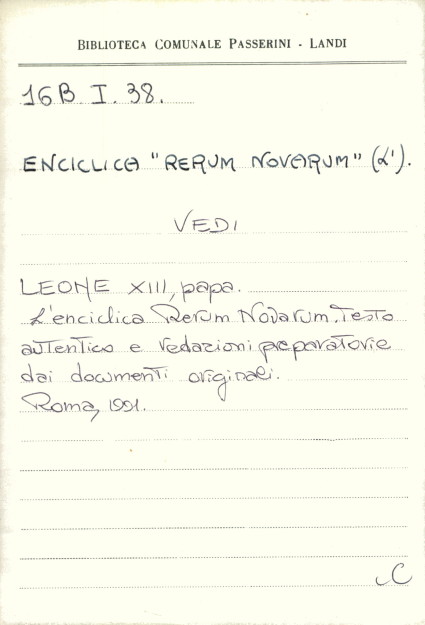 BIBLIOTECA COMUNALE PASSERINI - LANDI
16B. I. 38.
ENCICLICA "RERUM NOVARUM" (L').
VEDI
LEONE XIII, papa.
L'enciclica Rerum Novarum. Testo
autentico e redazioni preparatorie
dai documenti originali.
Roma, 1991.
C